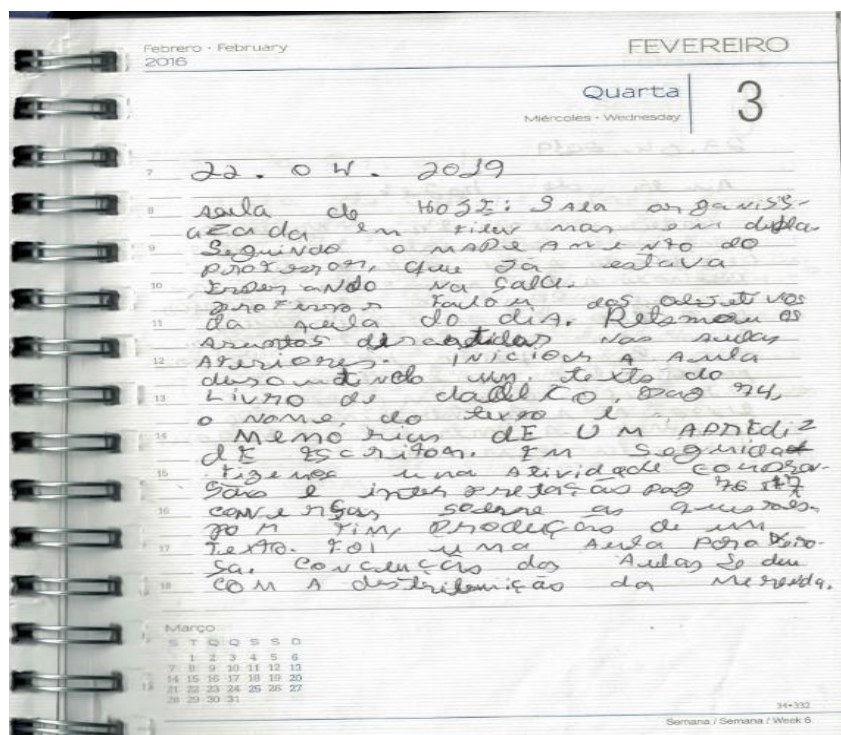 Febrero - February
2016
FEVEREIRO
Quarta
Miércoles - Wednesday
3
7 22. 04. 2019
8 aula de HOJE: Sala organiss-
azada em filas mas em dupla
9 Seguindo o MAPEAMENTO do
professor, que Já estava
10 na sala.
professor falou dos objetivos
11 da aula do diA. Retomou os
Asuntos discutidos nas aulas
12 Ateriores. iniciou A Aula
discutindo um texto do
13 Livro de dadtico, pag 74,
o NOME, do texto é
14 MEMórias dE UM APREdiZ
dE escritor. Em Seguidad
15 fizemos uma Atividade
e interpretação pag 76
16 conversas sobre as
por fim, produção de um
17 Texto. FOI uma Aula
sa. das Aulas Se deu
18 COM A distribuição da Merenda.
Março
S T Q Q S S D
1 2 3 4 5 6
7 8 9 10 11 12 13
14 15 16 17 18 19 20
21 22 23 24 25 26 27
28 29 30 31
34•332
Semana / Semana / Week 6